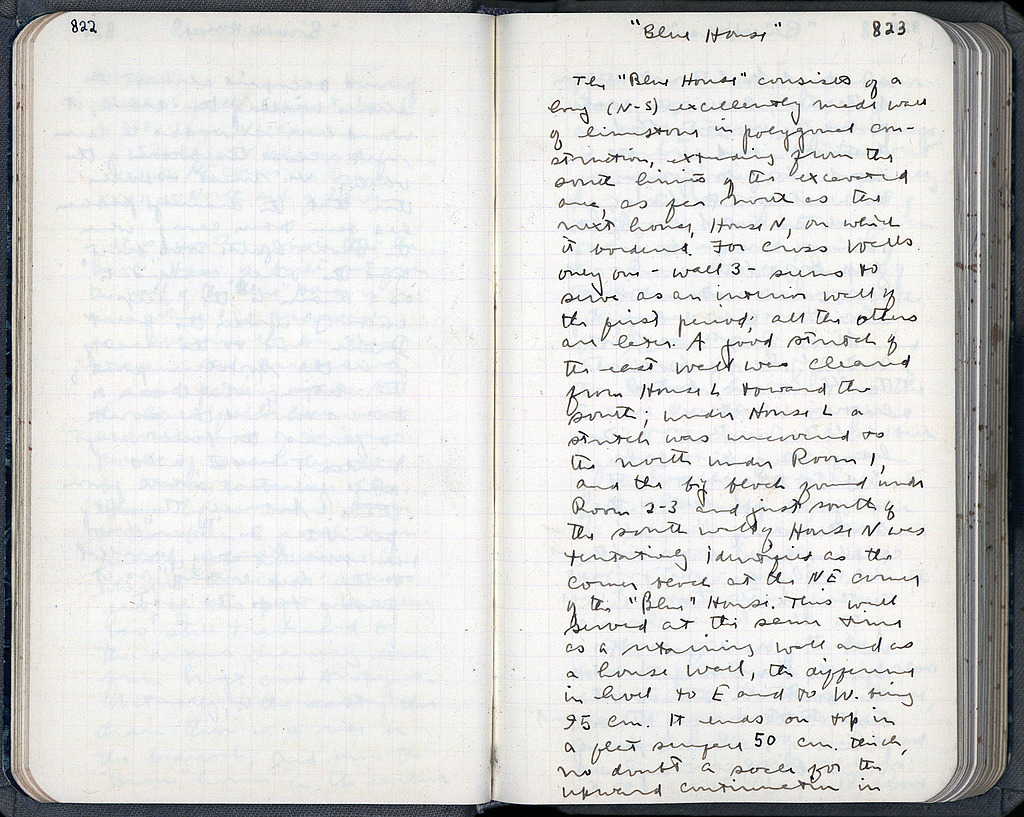 822
"Blue House" 823
The "Blue House" consists of a
long (N-S) excellently made wall
of limestone in polygonal con-
struction, extending from the
south limits of the excavated
area, as far north as the
next house, House N, on which
it bordered. For cross walls
only one - wall 3 - seems to
serve as an interior wall of
the first period; all the others
are later. A good stretch of
the east wall was cleared
from House L toward the
south; under House L a
stretch was uncovered to
the north under Room 1,
and the big block found under
Room 2-3 and just south of
the south wall of House N was
tentatively identified as the
corner block at the NE corner
of the "Blue" House. This wall
served at the same time
as a retaining wall and as
a house wall, the difference
in level to E and to W. being
95 cm. It ends on top in
a flat surface 50 cm. thick,
no doubt a socle for the
upward continuation in